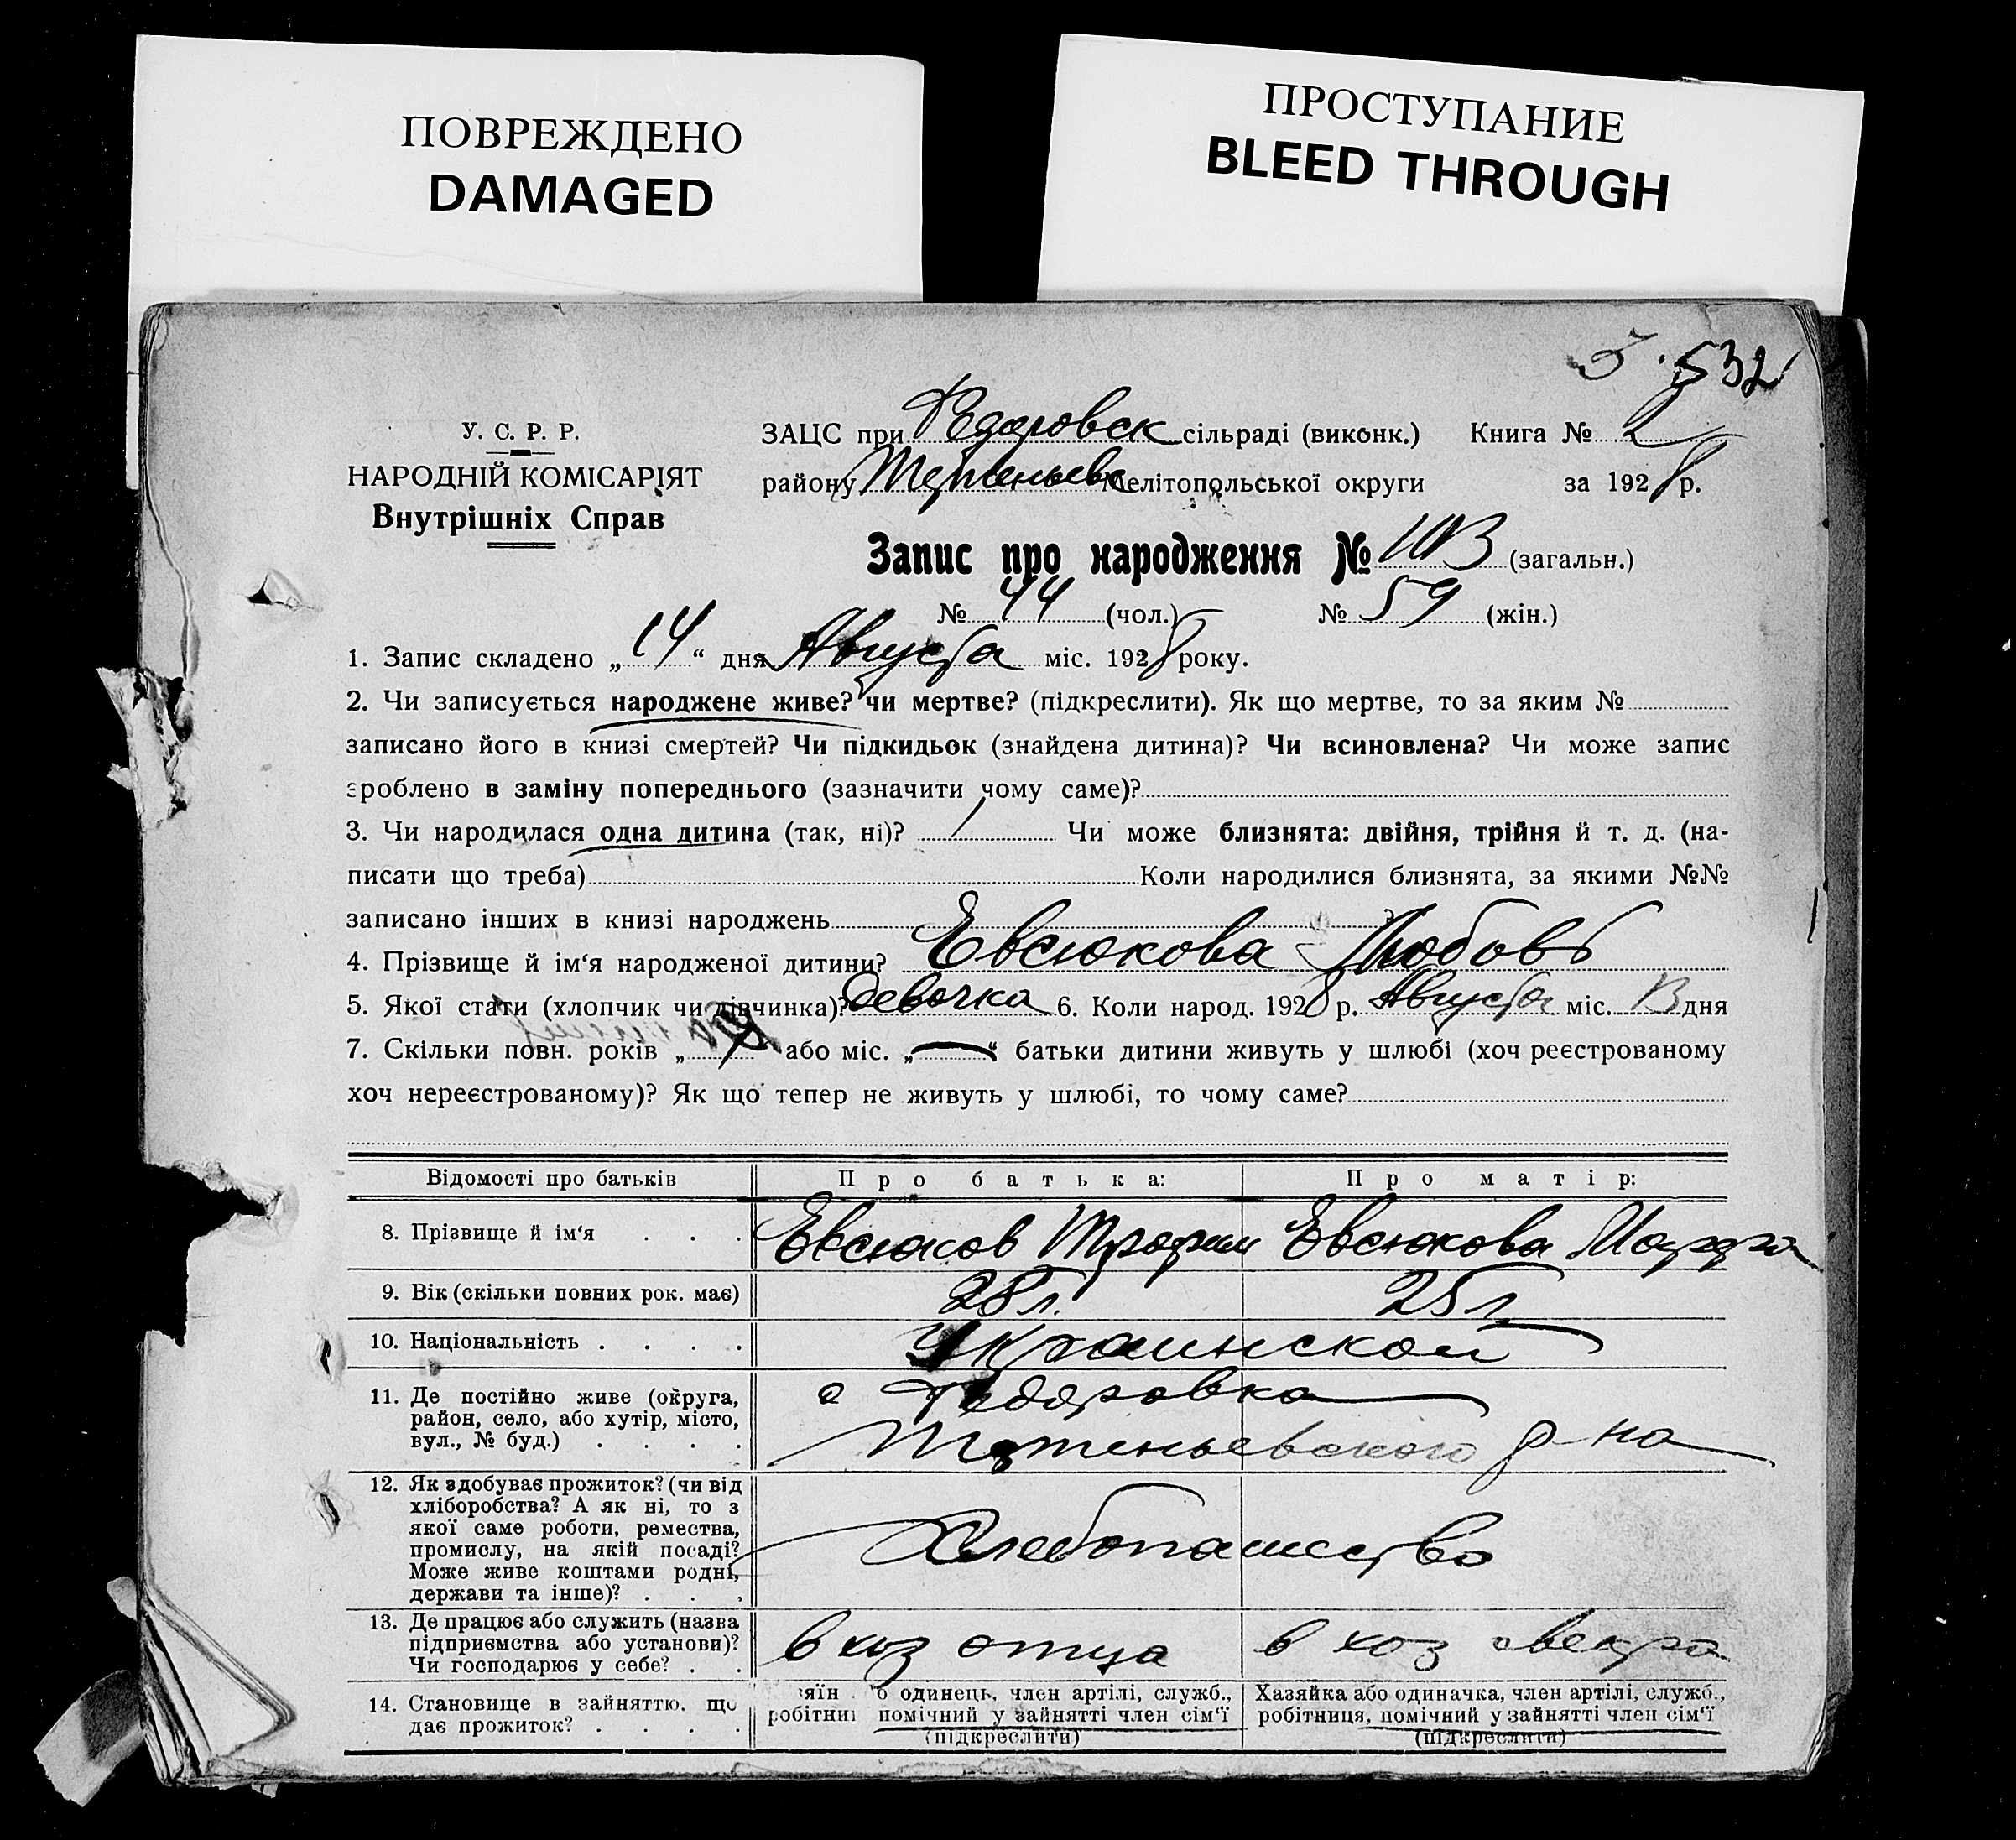 ПОВРЕЖДЕНО
DAMAGED
ПРОСТУПАНИЕ
BLEED THROUGH
532
У. С. Р. Р.
НАРОДНІЙ КОМІСАРІЯТ
Внутрішніх Справ
ЗАЦС при Федоровск сільраді (виконк.) Книга № 2
району Мелітопольської округи за 1928 р.
Запис про народження № 103 (загальн.)
№ 44 (чол.) № 59 (жін.)
1. Запис складено „14“ дня Августа міс. 1928 року.
2. Чи записується народжене живе? чи мертве? (підкреслити). Як що мертве, то за яким №
записано його в книзі смертей? Чи підкидьок (знайдена дитина)? Чи всиновлена? Чи може запис
зроблено в заміну попереднього (зазначити чому саме)?
3. Чи народилася одна дитина (так, ні)? Чи може близнята: двійня, трійня й т. д. (на-
писати що треба) Коли народилися близнята, за якими №№
записано інших в книзі народжень ?
4. Прізвище й ім‘я народженої дитини? Евсюкова Любовь
5. Якої стати (хлопчик чи дівчинка)? девочка 6. Коли народ. 1928 р. Августа міс. 13 дня
7. Скільки повн. років „ “ або міс. „—“ батьки дитини живуть у шлюбі (хоч реєстрованому
хоч нереєстрованому)? Як що тепер не живуть у шлюбі, то чому саме?
Відомості про батьків Про батька: Про матір:
8. Прізвище й ім‘я . . . Евсюков Трофим Евсюкова Марфа
9. Вік (скільки повних рок. має) 28 л. 25 л
10. Національність . . . . Украинской
11. Де постійно живе (округа,
район, село, або хутір, місто,
вул., № буд.) . . . .
с Федоровка
р-на
12. Як здобуває прожиток? (чи від
хліборобства? А як ні, то з
якої саме роботи, ремества,
промислу, на якій посаді?
Може живе коштами родні,
держави та інше)? . . .
Хлебопашество
13. Де працює або служить (назва
підприємства або установи)?
Чи господарює у себе? . .
в хоз отца в хоз свекра
14. Становище в зайняттю, що
дає прожиток? . . . .
зяїн о одинець, член артілі, служб.,
робітни помічний у зайнятті член сім‘ї
(підкреслити)
Хазяйка або одиначка, член артілі, служб.,
робітниця, помічний у зайнятті член сім‘ї
(підкреслити)